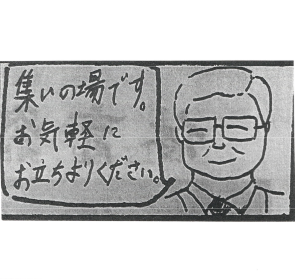 集いの場です。
お気軽に
お立ちよりください。